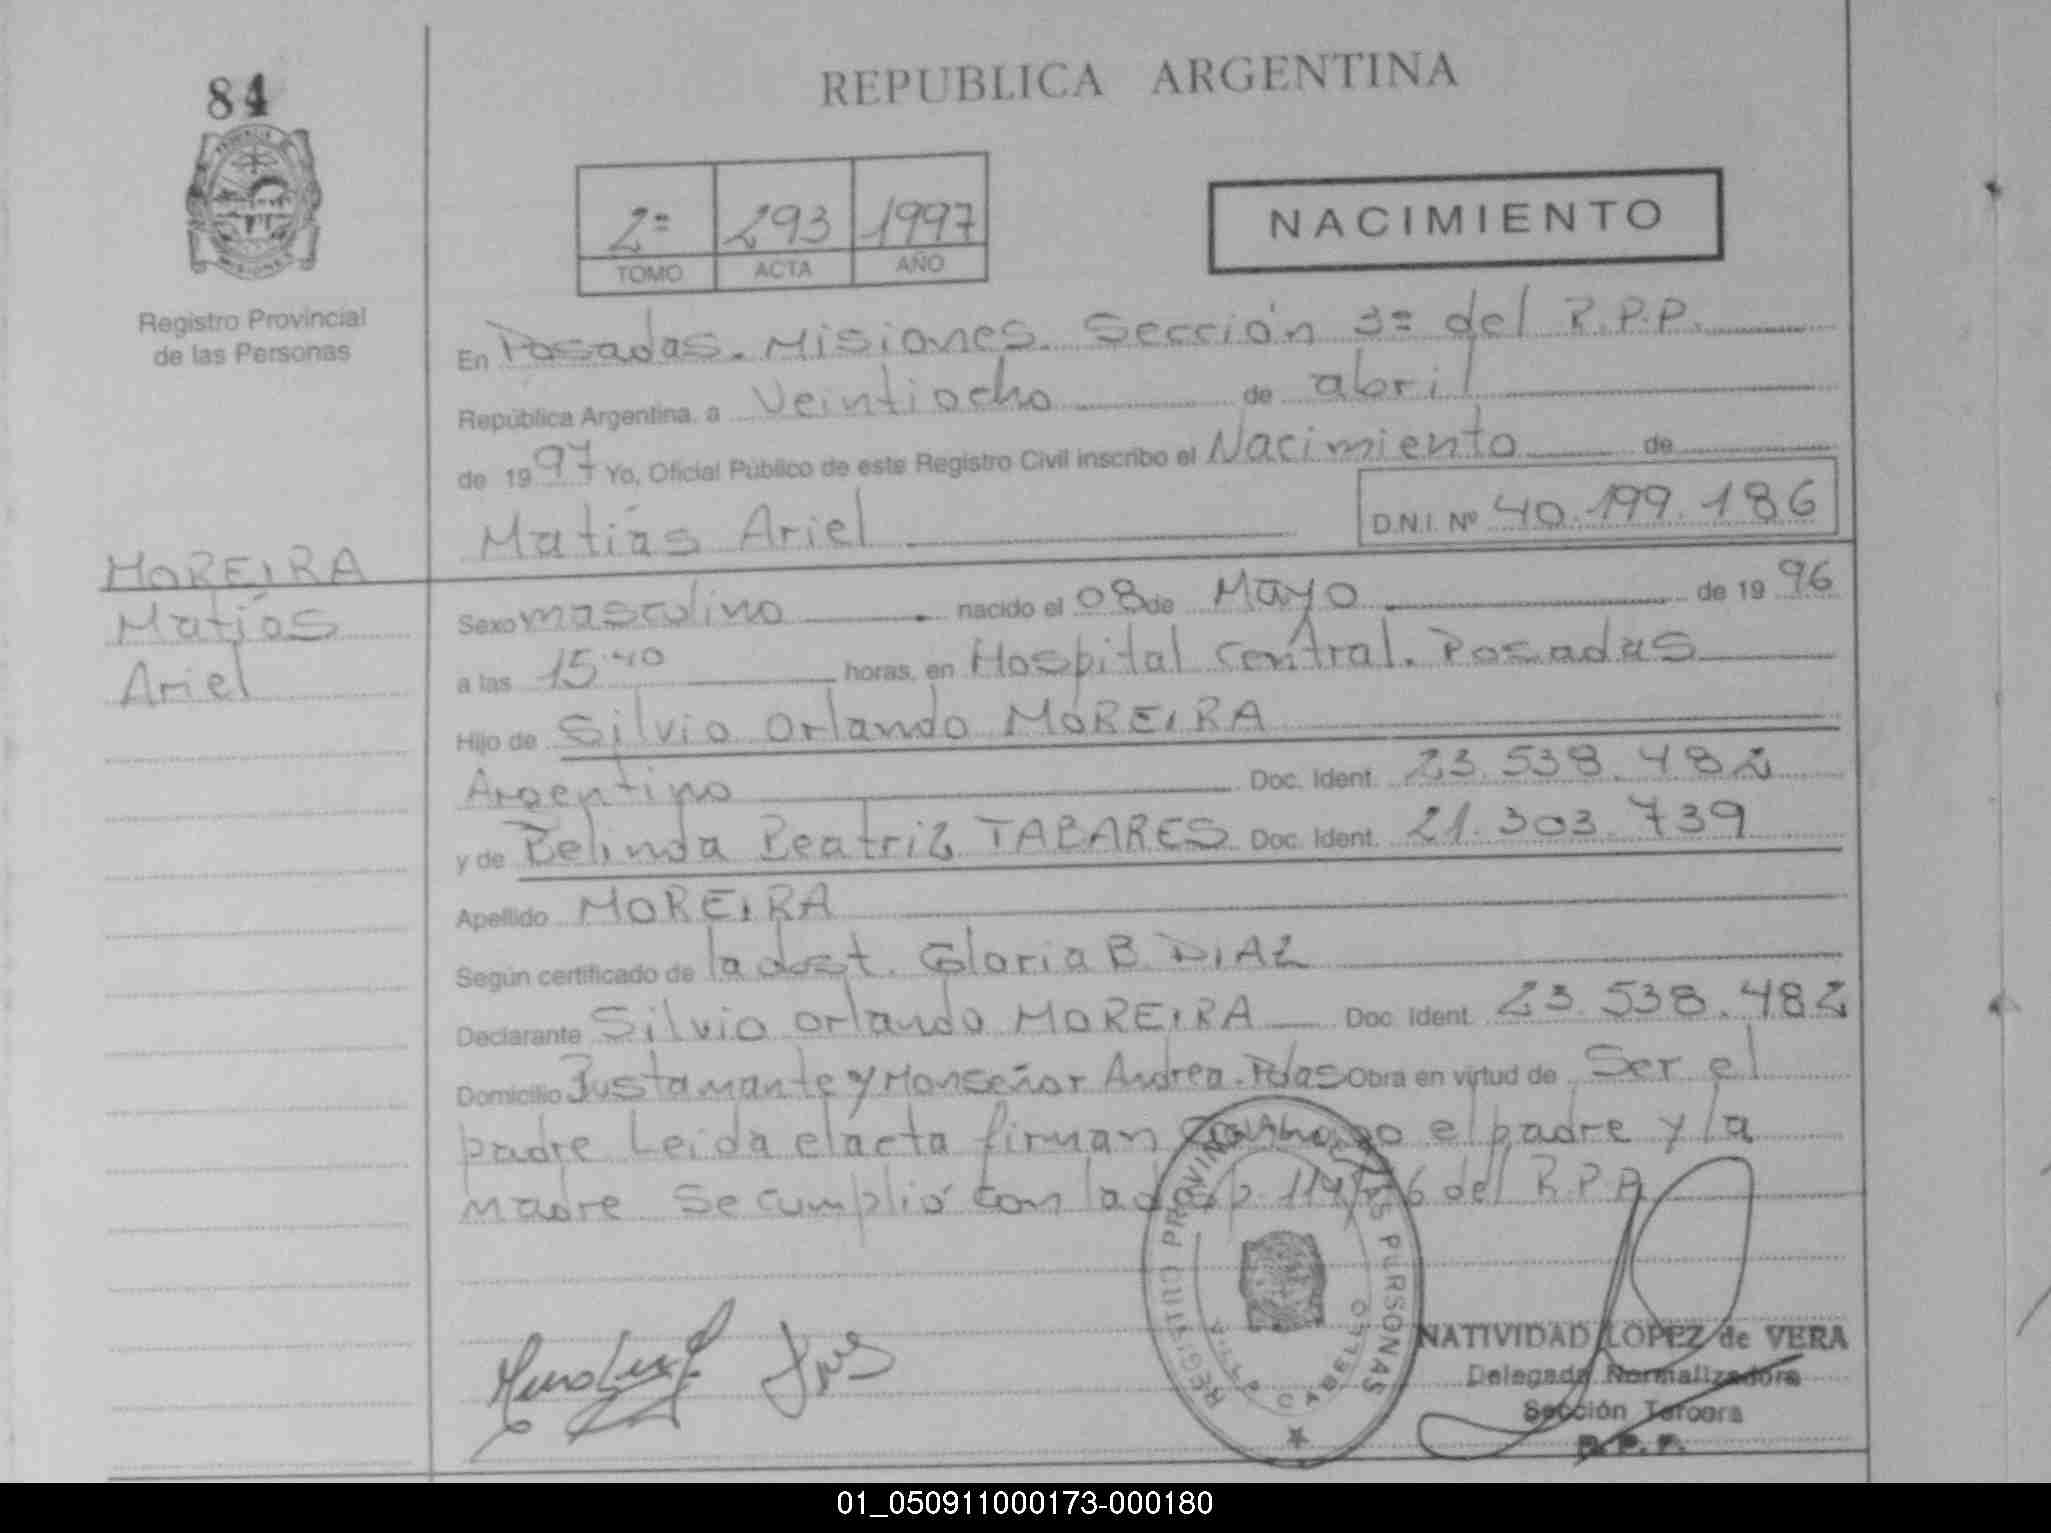 84
REPUBLICA ARGENTINA
PROVINCIA DE
MISIONES
Registro Provincial
de las Personas
2º 293 1997
TOMO ACTA AÑO
NACIMIENTO
En Posadas. Misiones. Sección 3ª del R.P.P.
República Argentina, a Veintiocho de abril
de 1997 Yo, Oficial Público de este Registro Civil inscribo el Nacimiento de
Matías Ariel D.N.I. Nº 40.199.186
MOREIRA
Matías
Ariel
Sexo masculino nacido el 08 de Mayo de 1996
a las 15:40 horas, en Hospital Central. Posadas
Hijo de Silvio Orlando MOREIRA
Argentino Doc. Ident. 23.538.482
y de Belinda Beatriz TABARES Doc. Ident. 21.303.739
Apellido MOREIRA
Según certificado de la obst. Gloria B. DIAZ
Declarante Silvio Orlando MOREIRA Doc. Ident. 23.538.482
Domicilio Bustamante y Monseñor Andrea. Pdas Obra en virtud de Ser el
padre Leida el acta firman conmigo el padre y la
madre Se cumplió con la disp. 114/96 del R.P.P.
REGISTRO PROVINCIAL DE LAS PERSONAS
VILLA CABELLO
NATIVIDAD LOPEZ de VERA
Delegada Normalizadora
Sección Tercera
R.P.P.
01_050911000173-000180